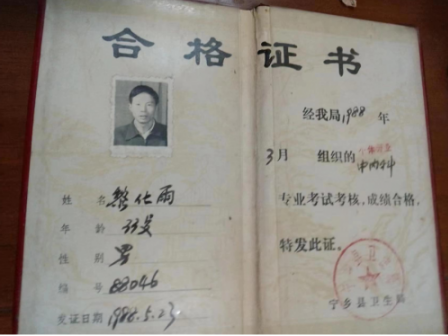 合格证书
姓名 黎仕雨
年龄
性别 男
编号 88046
发证日期 1988.5.23
经我局1988年
3月 组织的 中内科
专业考试考核，成绩合格，
特发此证。
宁乡县卫生局